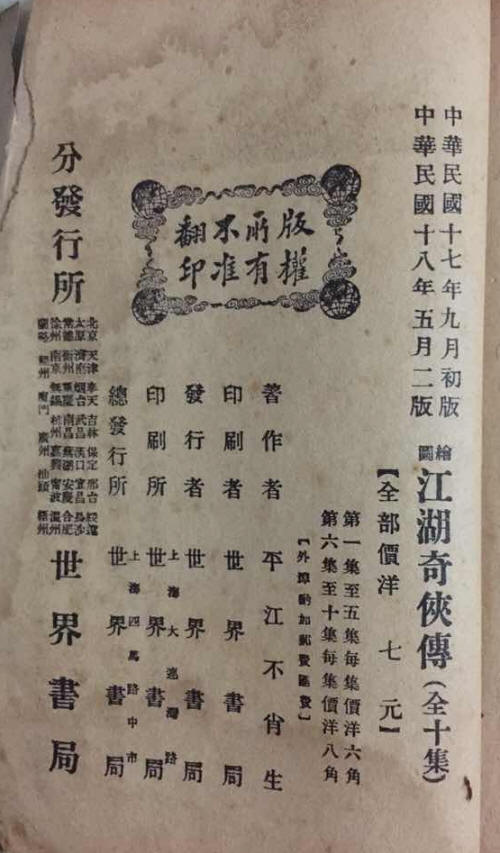 中華民國十七年九月初版
中華民國十八年五月二版
繪圖 江湖奇俠傳(全十集)
【全部價洋七元】
第一集至五集每集價洋六角
第六集至十集每集價洋八角
【外埠酌加郵費匯費】
版權所有
不准翻印
著作者 平江不肖生
印刷者 世界書局
發行者 世界書局
印刷所 上海大連灣路 世界書局
總發行所 上海四馬路中市 世界書局
分發行所
北京 天津 奉天 吉林 保定 邢台 綏遠
太原 濟南 烟台 武昌 漢口 宜昌 長沙
常德 衡州 重慶 南昌 蕪湖 安慶 合肥
徐州 南京 無錫 杭州 嘉興 甯波 溫州
蘭谿 福州 廈門 廣州 汕頭 梧州
世界書局